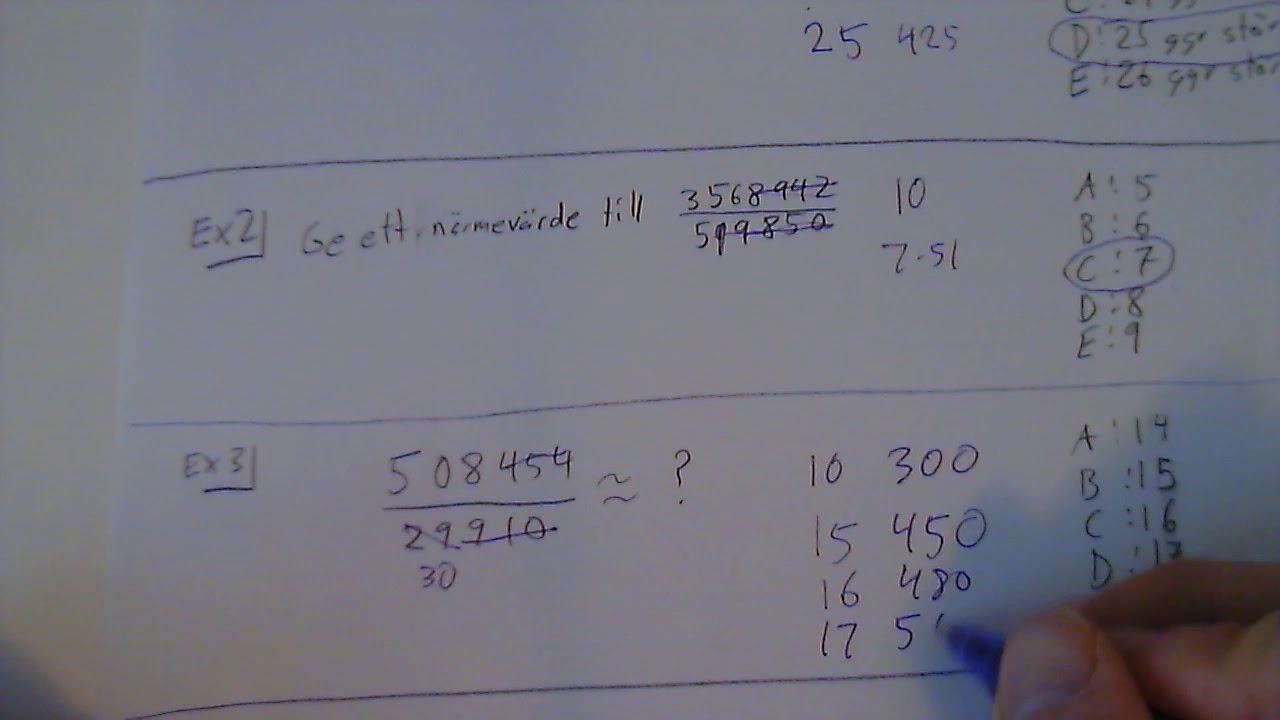 25 425
D: 25 ggr stör
E: 26 ggr stör
Ex2 Ge ett närmevärde till 3568942 / 519850
10
7.51
A: 5
B: 6
C: 7
D: 8
E: 9
Ex3 508454 / 29910 ≈ ?
30
10 300
15 450
16 480
17 5
A: 14
B: 15
C: 16
D: 17